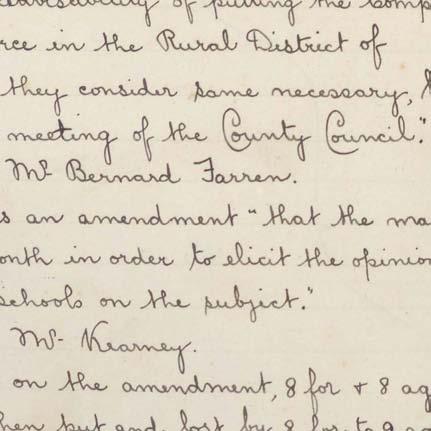 of putting the Comp
rce in the Rural District of
they consider same necessary,
meeting of the County Council."
Mr Bernard Farren.
s an amendment "that the ma
onth in order to elicit the opinion
schools on the subject."
Mr- Kearney.
on the amendment, 8 for & 8 ag
hen put and lost by 8 for to 9 ag